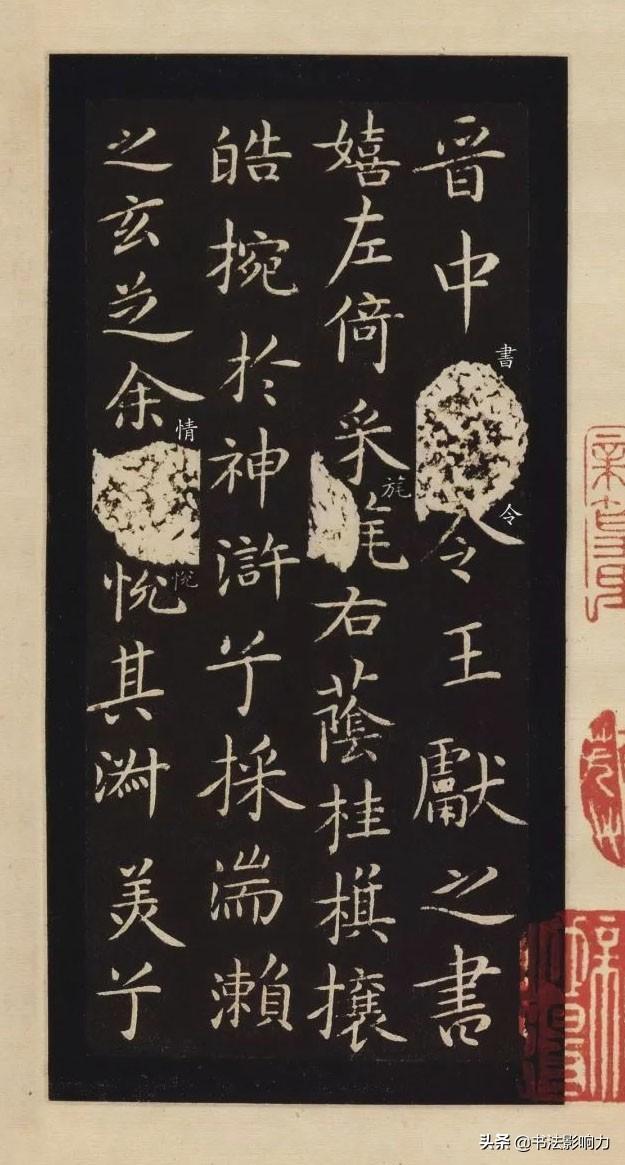 晋中書令王獻之書
嬉左倚采旄右蔭桂棋攘
皓捥於神滸兮採湍瀨
之玄芝余情悅其淑美兮
头条 @书法影响力